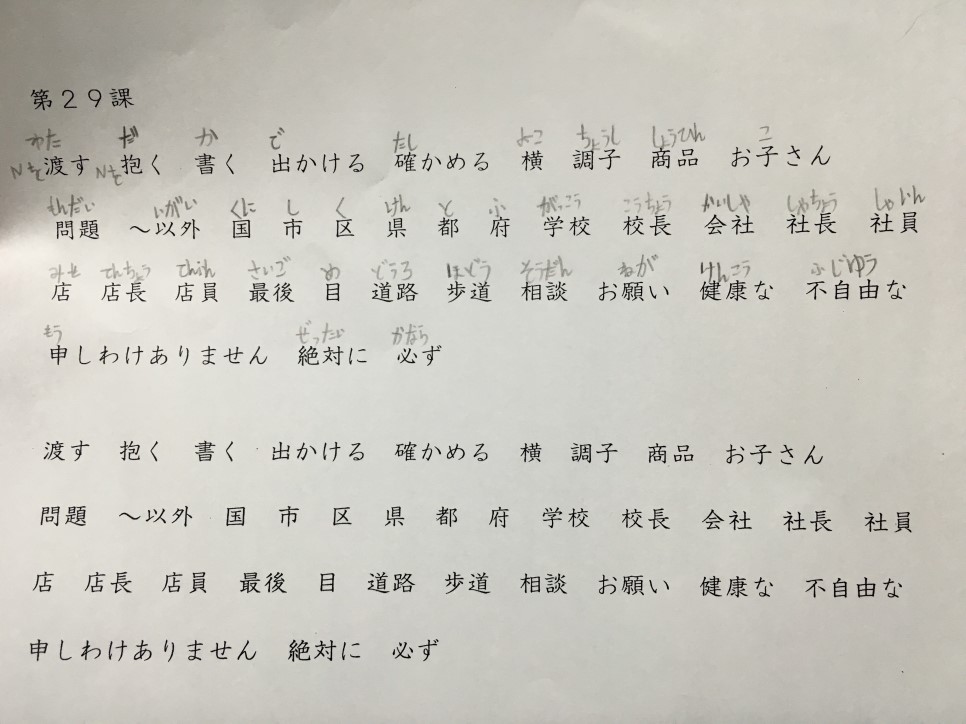 第２９課
わた だ か で たし よこ ちょうし しょうひん こ
Nを渡す Nを抱く 書く 出かける 確かめる 横 調子 商品 お子さん
もんだい いがい くに し く けん と ふ がっこう こうちょう かいしゃ しゃちょう しゃいん
問題 ～以外 国 市 区 県 都 府 学校 校長 会社 社長 社員
みせ てんちょう てんいん さいご め どうろ ほどう そうだん ねが けんこう ふじゆう
店 店長 店員 最後 目 道路 歩道 相談 お願い 健康な 不自由な
もう ぜったい かなら
申しわけありません 絶対に 必ず
渡す 抱く 書く 出かける 確かめる 横 調子 商品 お子さん
問題 ～以外 国 市 区 県 都 府 学校 校長 会社 社長 社員
店 店長 店員 最後 目 道路 歩道 相談 お願い 健康な 不自由な
申しわけありません 絶対に 必ず